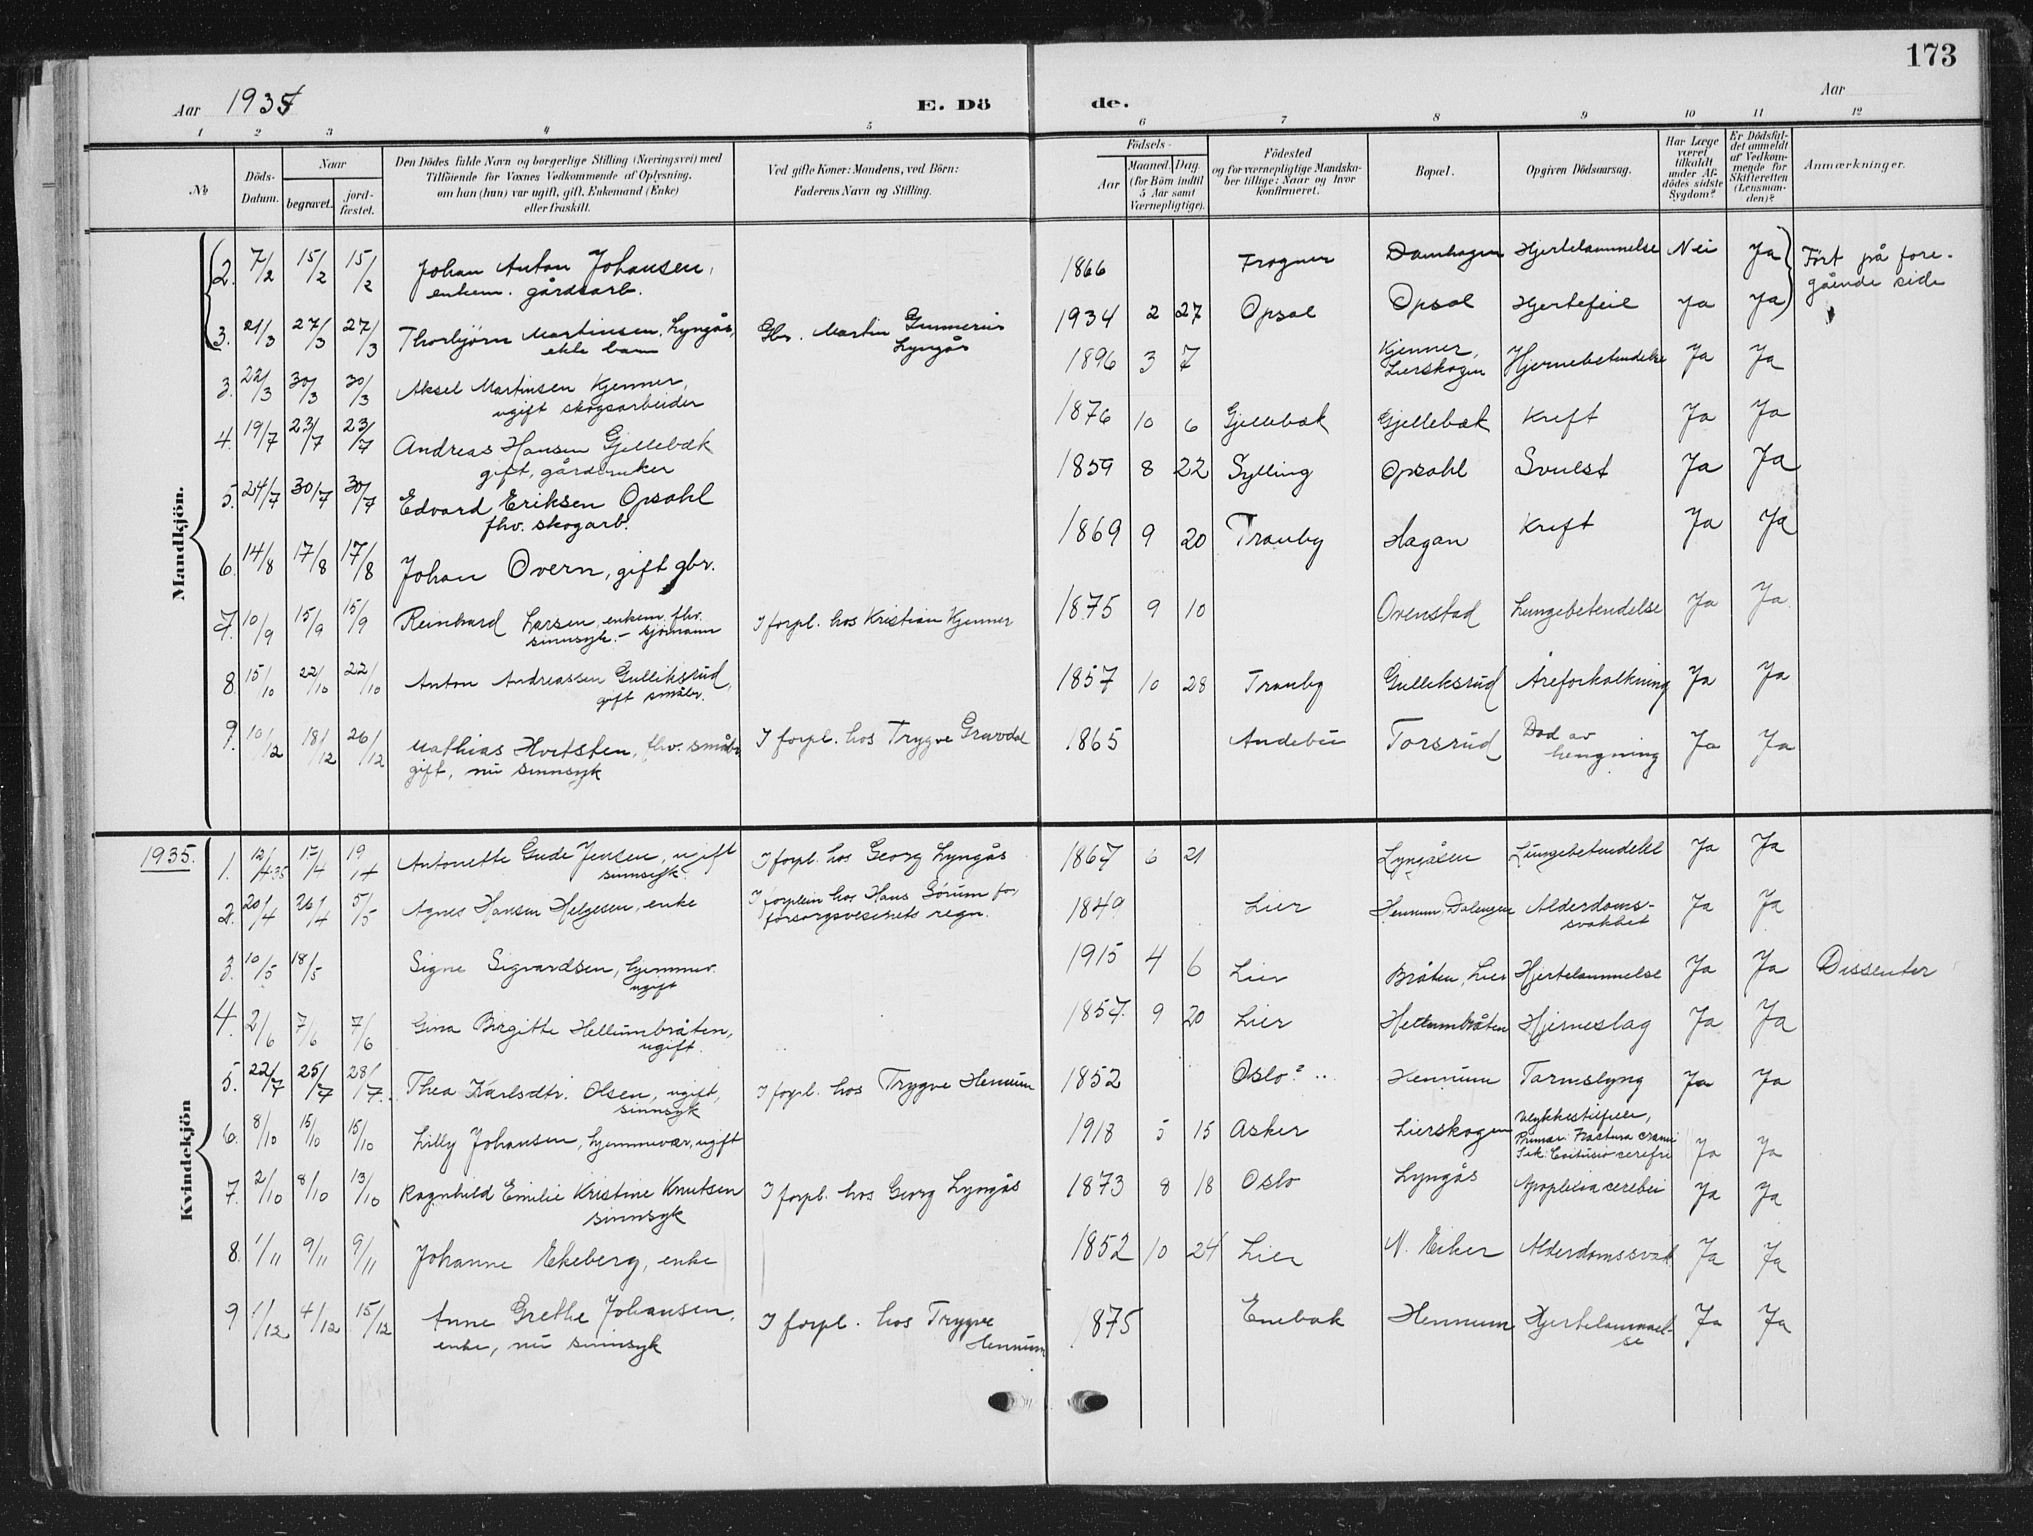 173
Aar 1935
E. Dö
de.
Aar
1 2 3 4 5 6 7 8 9 10 11 12
No
Döds-
Datum.
Naar
begravet.
jord-
fæstet.
Den Dödes fulde Navn og borgerlige Stilling (Næringsvei) med
Tilföiende for Voxnes Vedkommende af Oplysning,
om han (hun) var ugift, gift, Enkemand (Enke)
eller fraskilt.
Ved gifte Koner: Mandens, ved Börn:
Faderens Navn og Stilling.
Födsels-
Aar
Maaned. Dag.
(for Börn indtil
5 Aar samt
Værnepligtige).
Födested
og for værnepligtige Mandska-
ber tillige: Naar og hvor
konfirmeret.
Bopæl.
Opgiven Dödsaarsag.
Har Læge
været
tilkaldt
under Af-
dödes sidste
Sygdom?
Er Dödsfal-
det anmeldt
af Vedkom-
mende for
Skifteretten
(Lensman-
den)?
Anmærkninger.
Mandkjön.
2. 7/2 15/2 15/2 Johan Anton Johansen, 1866 Frogner Damhagen Hjertelammelse Nei Ja Fört på fore-
enkem. gårdsarb. gående side
3. 21/3 27/3 27/3 Thorbjörn Martinsen Lyngås, Gbr. Martin Gunnerius 1934 2 27 Opsal Opsal Hjertefeil Ja Ja
ekte barn Lyngås
3. 22/3 30/3 30/3 Aksel Martinsen Kjenner, 1896 3 7 Kjenner, Hjernebetendelse Ja Ja
ugift skogsarbeider Lierskogen
4. 19/7 23/7 23/7 Andreas Hansen Gjellebæk 1876 10 6 Gjellebæk Gjellebæk Kreft Ja Ja
gift, gårdbruker
5. 24/7 30/7 30/7 Edvard Eriksen Opsahl 1859 8 22 Sylling Opsahl Svulst Ja Ja
fhv. skogarb.
6. 14/8 17/8 17/8 Johan Overn, gift gbr. 1869 9 20 Tranby Hagan Kreft Ja Ja
7. 10/9 15/9 15/9 Reinhard Larsen, enkem. fhv. I forpl. hos Kristian Kjenner 1875 9 10 Ovenstad Lungebetendelse Ja Ja
sinnsyk. - sjömann
8. 15/10 22/10 22/10 Anton Andreassen Gulliksrud, 1857 10 28 Tranby Gulleksrud Åreforkalkning Ja Ja
gift småbr.
9. 10/12 18/12 26/12 Mathias Hvitsten, fhv. småbr I forpl. hos Trygve Gravdal 1865 Andebu Torsrud Död av Ja Ja
gift, nu sinnsyk hengning
Kvindekjön
1935. 1. 12/4 35 17/4 19/4 Antonette Gude Jensen, ugift I forpl. hos Georg Lyngås 1867 6 21 Lyngåsen Lungebetendelse Ja Ja
sinnsyk
2. 20/4 26/4 5/5 Agnes Hansen Helgesen, enke I forplein hos Hans Sörum for 1849 Lier Hennum, Dalengen Alderdoms- Ja Ja
forsorgsvesenets regn. svakhet
3. 10/5 18/5 Signe Sigvardsen, hjemmev. 1915 4 6 Lier Bråten, Lier Hjertelammelse Ja Ja Dissenter
ugift
4. 2/6 7/6 7/6 Gina Birgitte Hellumbråten, 1857 9 20 Lier Hellumbråten Hjerneslag Ja Ja
ugift.
5. 22/7 25/7 28/7. Thea Karlsdtr. Olsen, ugift, I forpl. hos Trygve Hennum 1852 Oslo? Hennum Tarmslyng Ja Ja
sinnsyk
6. 8/10 15/10 15/10 Lilly Johansen, hjemmevær., ugift 1918 5 15 Asker Lierskogen Ulykkestilfelle,
Primær: Fractura cranii
Sek: cerebri Ja Ja
7. 2/10 8/10 13/10 Ragnhild Emilie Kristine Knutsen I forpl. hos Georg Lyngås 1873 8 18 Oslo Lyngås Apoplexia cerebri Ja Ja
sinnsyk
8. 1/11 9/11 9/11 Johanne Ekeberg, enke 1852 10 24 Lier N. Eiker Alderdomssvak Ja Ja
9 1/12 4/12 15/12 Anne Grethe Johansen, I forpl. hos Trygve 1875 Enebak Hennum Hjertelammel- Ja Ja
enke, nu sinnsyk Hennum se